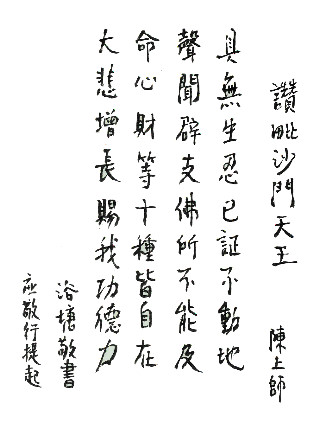 讚毗沙門天王 陳上師
具無生忍已証不動地
聲聞辟支佛所不能及
命心財等十種皆自在
大悲增長賜我功德力
浴塘敬書
應敬行提起